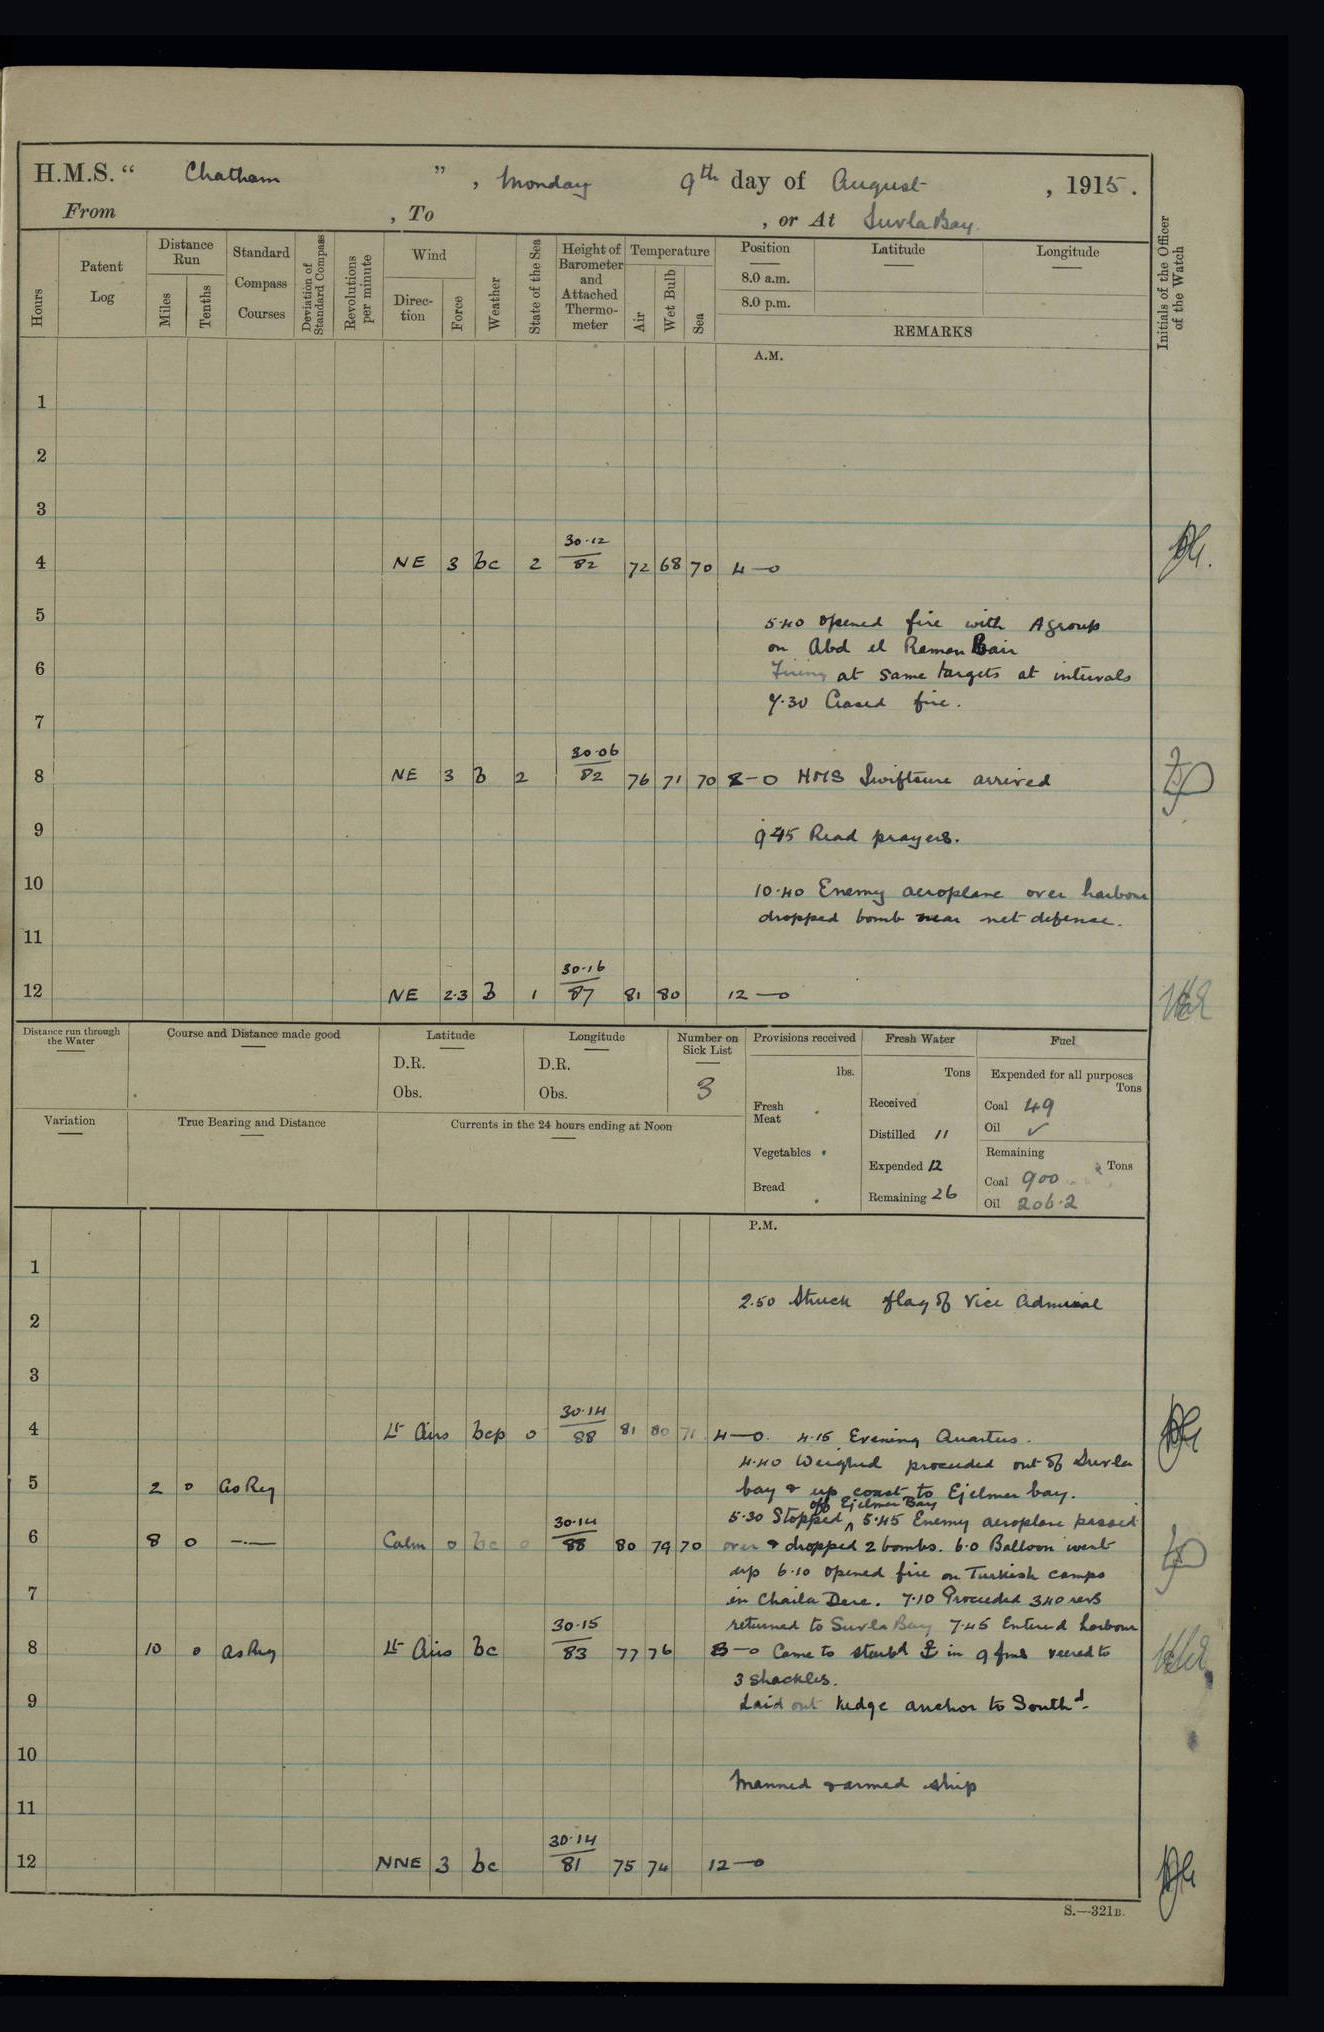 H.M.S. “ Chatham ” , Monday 9th day of August , 1915.
From , To , or At Suvla Bay.
Hours
Patent Log
Distance Run
Miles
Tenths
Standard Compass Courses
Deviation of Standard Compass
Revolutions per minute
Wind
Direction
Force
Weather
State of the Sea
Height of Barometer and Attached Thermometer
Temperature
Air
Wet Bulb
Sea
Position
8.0 a.m.
8.0 p.m.
Latitude
Longitude
REMARKS
Initials of the Officer of the Watch
A.M.
1
2
3
30·12
4 NE 3 bc 2 82 72 68 70 4—0
5
5·40 opened fire with A group
on Abd el Raman Bair
6
Firing at same targets at intervals
7·30 Ceased fire.
7
30·06
8 NE 3 b 2 82 76 71 70 8—0 HMS Swiftsure arrived
9 9 45 Read prayers.
10 10·40 Enemy aeroplane over harbour
dropped bomb near net defense.
11
30·16
12 NE 2·3 b 1 87 81 80 12—0
Distance run through the Water
Course and Distance made good
Latitude
D.R.
Obs.
Longitude
D.R.
Obs.
Number on Sick List
3
Provisions received
lbs.
Fresh Meat
Vegetables
Bread
Fresh Water
Tons
Received
Distilled 11
Expended 12
Remaining 26
Fuel
Expended for all purposes
Tons
Coal 49
Oil ✓
Remaining
Tons
Coal 900
Oil 206·2
Variation
True Bearing and Distance
Currents in the 24 hours ending at Noon
P.M.
1
2.50 Struck flag of Vice Admiral
2
3
30·14
4 Lt Airs bcp 0 88 81 80 71 4—0. 4·15 Evening Quarters.
4·40 Weighed proceeded out of Suvla
5 2 0 as Req bay & up coast to Ejelmer bay.
off Ejelmer Bay
5·30 Stopped ^ 5·45 Enemy aeroplane passed
30·14
6 8 0 —·— Calm 0 bc 0 88 80 79 70 over & dropped 2 bombs. 6·0 Balloon went
up 6·10 opened fire on Turkish camps
7 in Chaila Dere. 7·10 Proceeded 340 revs
30·15
returned to Suvla Bay 7·45 Entered harbour
8 10 0 as Req Lt Airs bc 83 77 76 8—0 Came to starbd ⚓ in 9 fms veered to
3 shackles.
9 Laid out kedge anchor to Southd.
10
Manned & armed ship
11
30·14
12 NNE 3 bc 81 75 74 12—0
S.—321B.